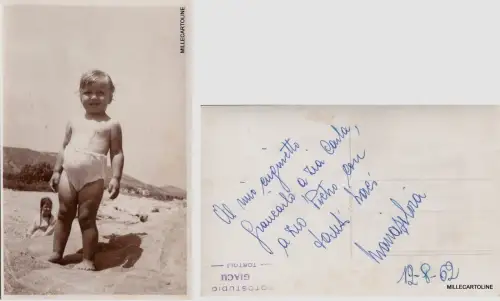 MILLECARTOLINE
Al mio cuginetto
Giancarlo a zia Carla,
a zio Pietro con
tanti baci
12-8-62
FOTOSTUDIO
GIACU
TORTOLI
MILLECARTOLINE